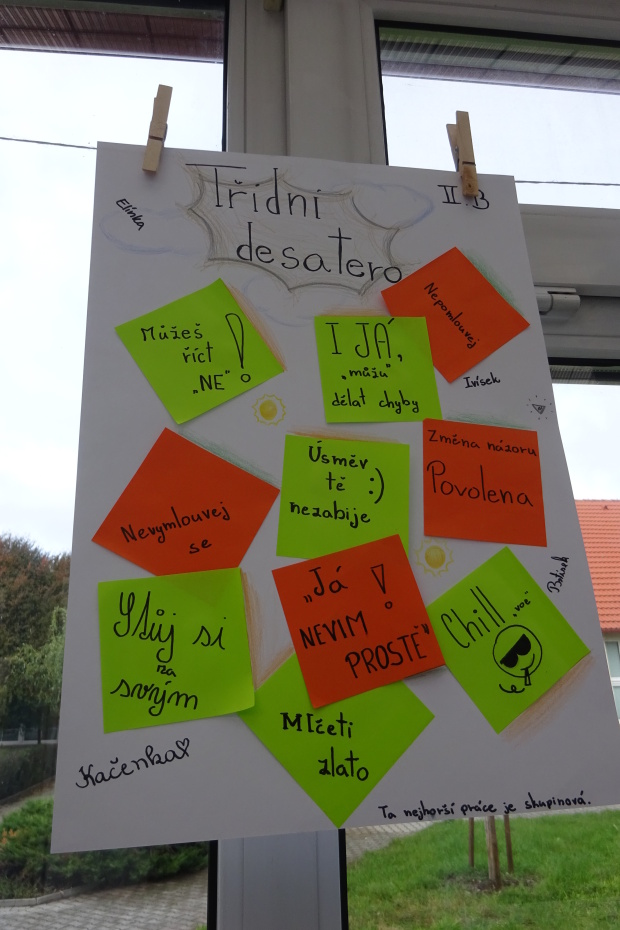 Třídní
desatero
II.B
Elínka
Můžeš
říct
„NE" !
I JÁ,
„můžu"
dělat chyby
Nepomlouvej
Ivísek
Nevymlouvej
se
Úsměv
tě :)
nezabije
Změna názoru
Povolena
Stůj si
za
svým
„Já !
NEVIM
PROSTĚ"
Chill „voe"
Mlčeti
zlato
Kačenka♡
Ta nejhorší práce je skupinová.